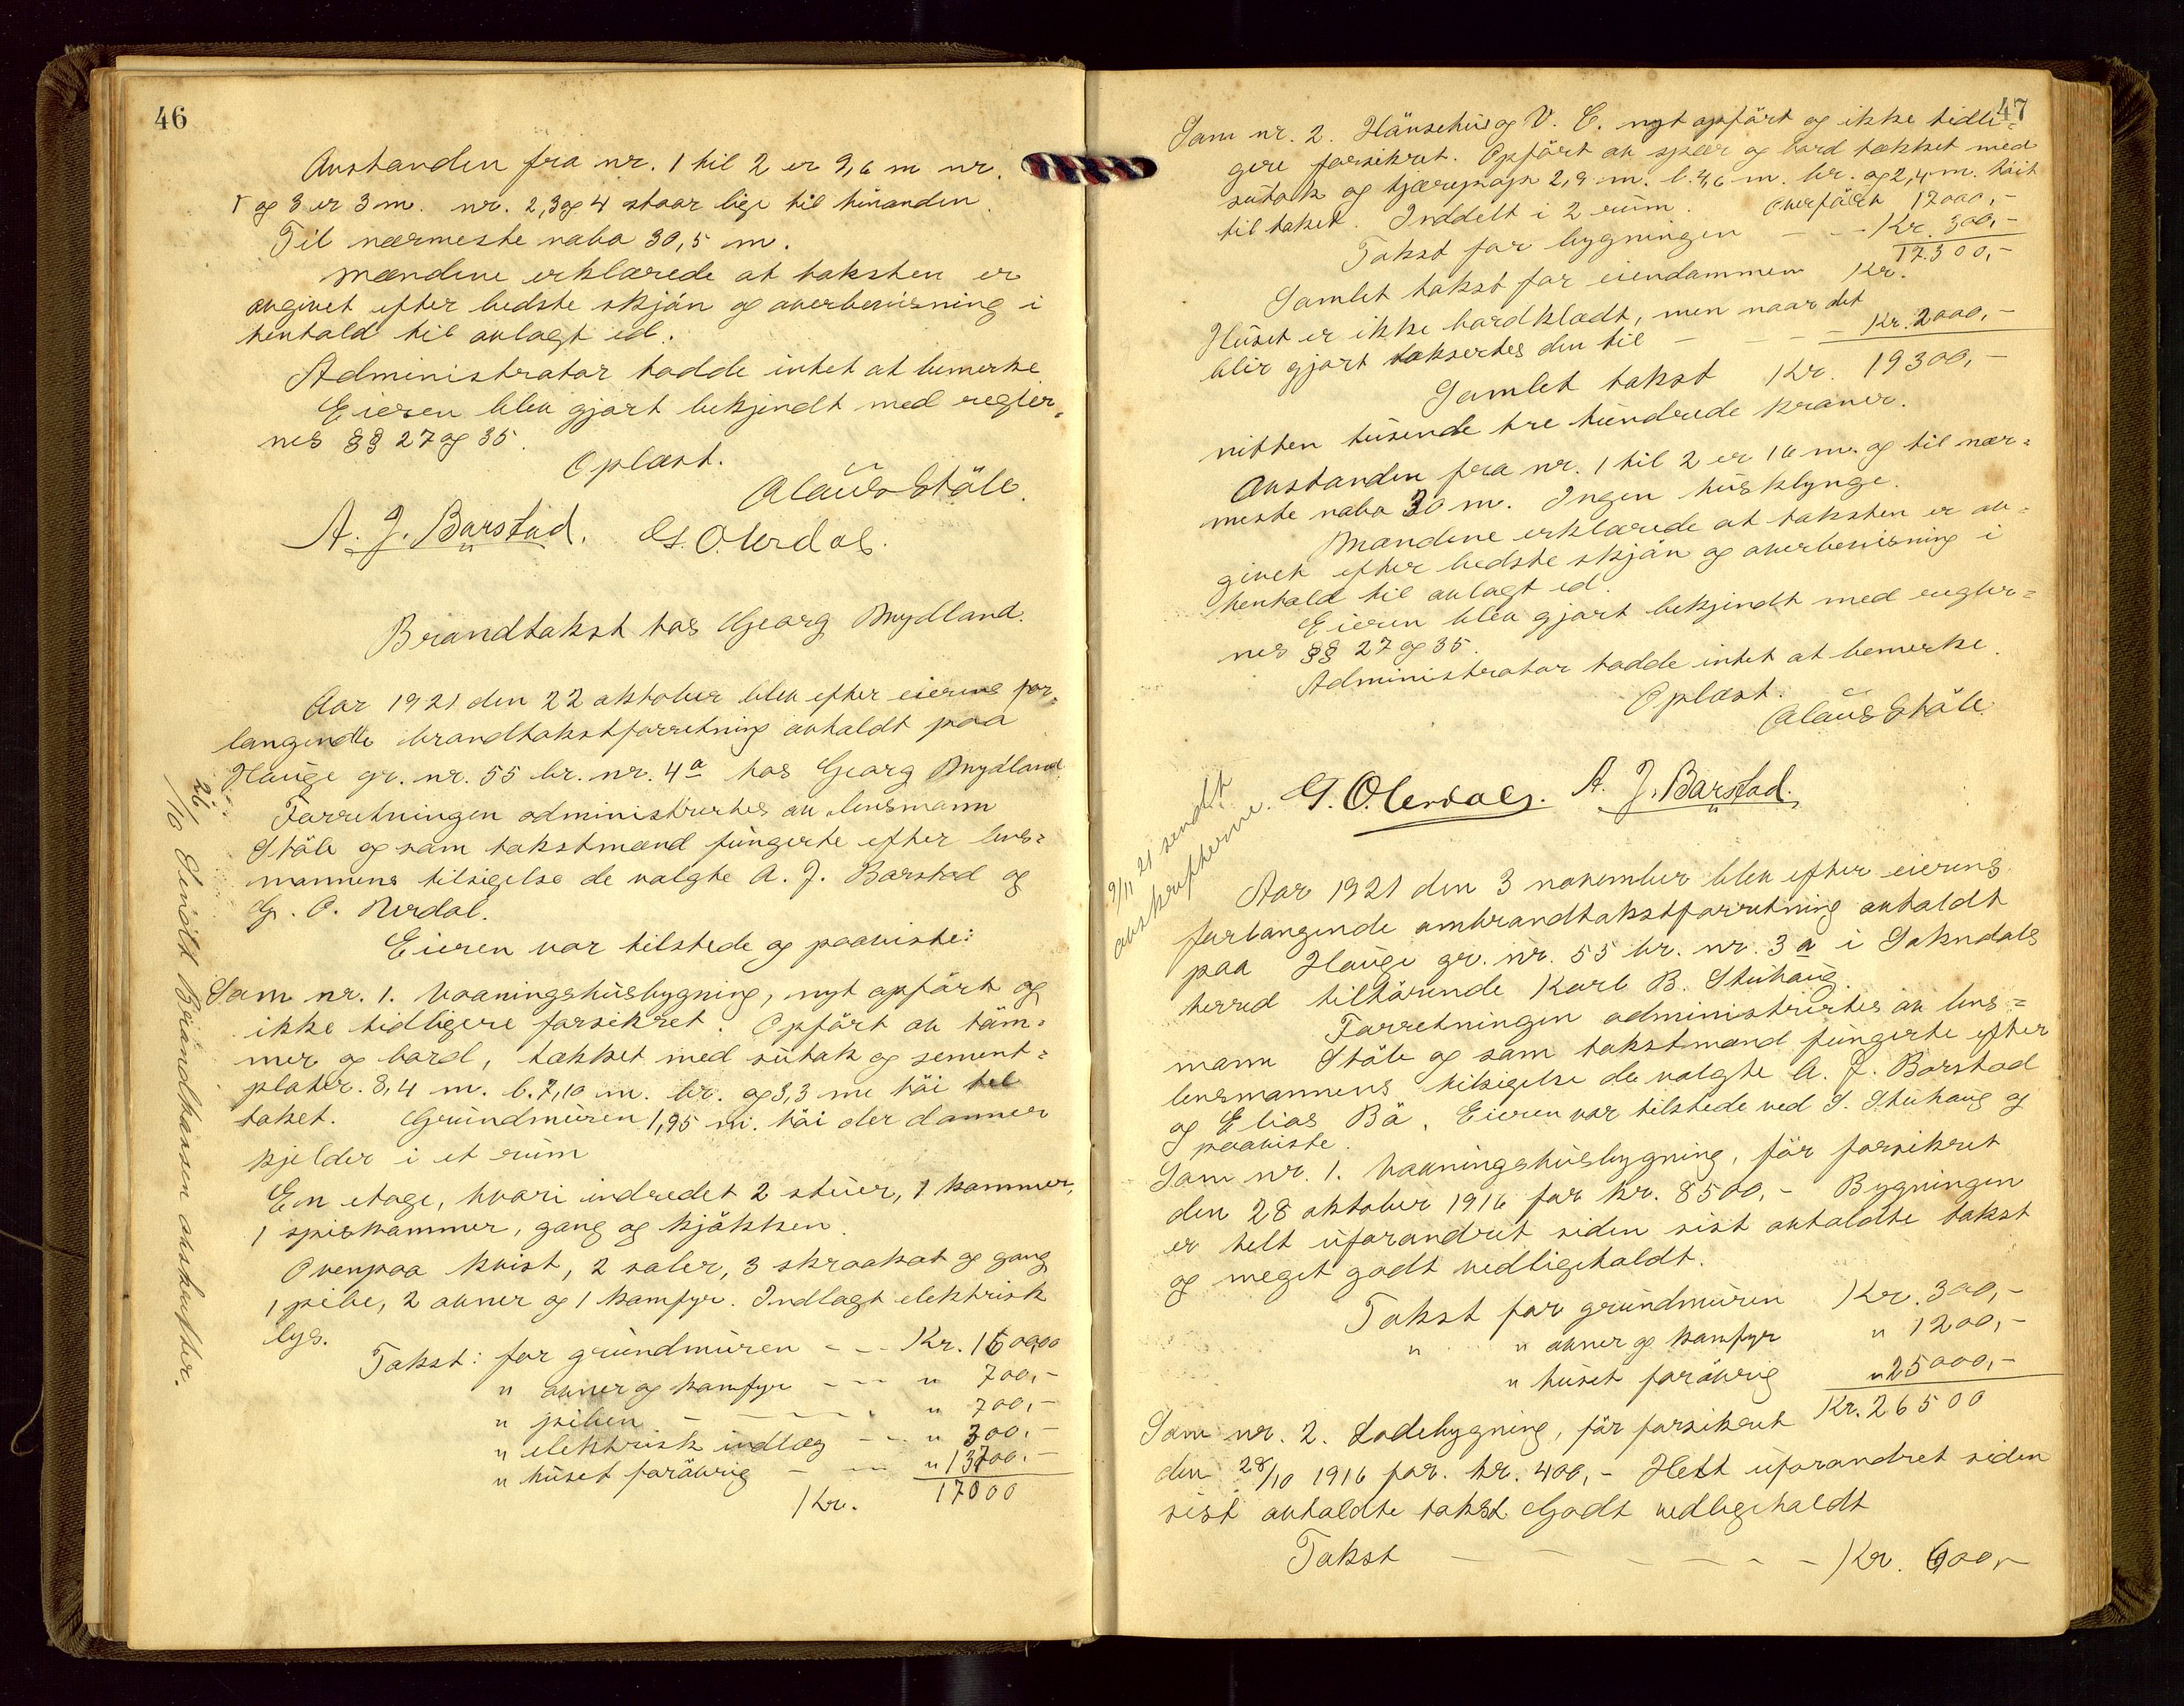 46
Avstanden fra nr. 1 til 2 er 9,6 m nr.
1 og 3 er 3 m. nr. 2, 3 og 4 staar lige til hinanden.
Til nærmeste nabo 30,5 m.
Mændene erklærede at taksten er
avgivet efter bedste skjön og overbevisning i
henhold til avlagt ed.
Administrator hadde intet at bemerke
Eieren blev gjort bekjendt med regler-
nes §§ 27 og 35.
Oplæst.
Olaus Ståle.
A. J. Barstad. G. O. Uerdal.
Brandtakst hos Georg Mydland.
Aar 1921 den 22 oktober blev efter eierens for-
langende brandtakstforretning avholdt paa
Hauge gr. nr. 55 br. nr. 4a hos Georg Mydland
Forretningen administrertes av lensmann
Ståle og som takstmænd fungerte efter lens=
mannens tilsigelse de valgte A. J. Barstad og
G. O. Uerdal.
Eieren var tilstede og paaviste:
Som nr. 1. Vaaningshusbygning, nyt opfört og
ikke tidligere forsikret. Opfört av töm=
mer og bord, tækket med sutak og sement=
plater. 8,4 m. l. 7,10 m. br. og 3,3 m höi til
taket. Grundmuren 1,95 m. höi der danner
kjelder i et rum
En etage, hvori indredet 2 stuer, 1 kammer,
1 spiskammer, gang og kjökken.
Ovenpaa kvist, 2 saler, 3 skraakot og gang
1 pibe, 2 ovner og 1 komfyr. Indlagt elektrisk
lys.
Takst: for grundmuren - - - Kr. 1600,00
" ovner og komfyr - - - " 700,-
" piben - - - - " 700,-
" elektrisk indlæg - - - " 300,-
" huset foröivrig - - - " 13700.-
Kr. 17000
26/10 Sendt Brandkassen avskrifter.
47
Som nr. 2. Hönsehus og V. C. nyt opfört og ikke tidli=
gere forsikret. Opfört av spær og bord tækket med
sutak og tjærepap 2,9 m. l. 4,6 m. br. og 2,4 m. höit
til taket. Inddelt i 2 rum. Overfört 17000,-
Takst for bygningen - - - Kr. 300,-
Samlet takst for eiendommen Kr. 17.300,-
Huset er ikke bordklædt, men naar det
blir gjort taksertes den til - - - Kr. 2000,-
Samlet takst Kr. 19300,-
nitten tusende tre hundrede kroner.
Avstanden fra nr. 1 til 2 er 16 m. og til nær=
meste nabo 30 m. Ingen husklynge.
Mændene erklærede at taksten er av=
givet efter bedste skjön og overbevisning i
henhold til avlagt ed.
Eieren blev gjort bekjendt med regler=
nes §§ 27 og 35.
Administrator hadde intet at bemerke.
Oplæst.
Olaus Ståle
9/11 21 sendt
avskrifterne.
G. O. Uerdal. A. J. Barstad.
Aar 1921 den 3 november blev efter eierens
forlangende ombrandtakstforretning avholdt
paa Hauge gr. nr. 55 br. nr. 3a i Sokndals
herred tilhörende Karl B. Stuhaug.
Forretningen administrertes av lens=
mann Ståle og som takstmænd fungerte efter
lensmannens tilsigelse de valgte A. J. Barstad
og Elias Bö. Eieren var tilstede ved S. Stuhaug og
paaviste.
Som nr. 1. Vaaningshusbygning, för forsikret
den 28 oktober 1916 for kr. 8500,- Bygningen
er helt uforandret siden sist avholdte takst
og meget godt vedligeholdt.
Takst for grundmuren Kr. 300,-
" " ovner og komfyr " 1200,-
" huset foröivrig " 25000,-
Kr. 26500
Som nr. 2. Lodebygning, för forsikret
den 28/10 1916 for. kr. 400,- Helt uforandret siden
sist avholdte takst Godt vedligeholdt
Takst - - - - - - Kr. 600,-